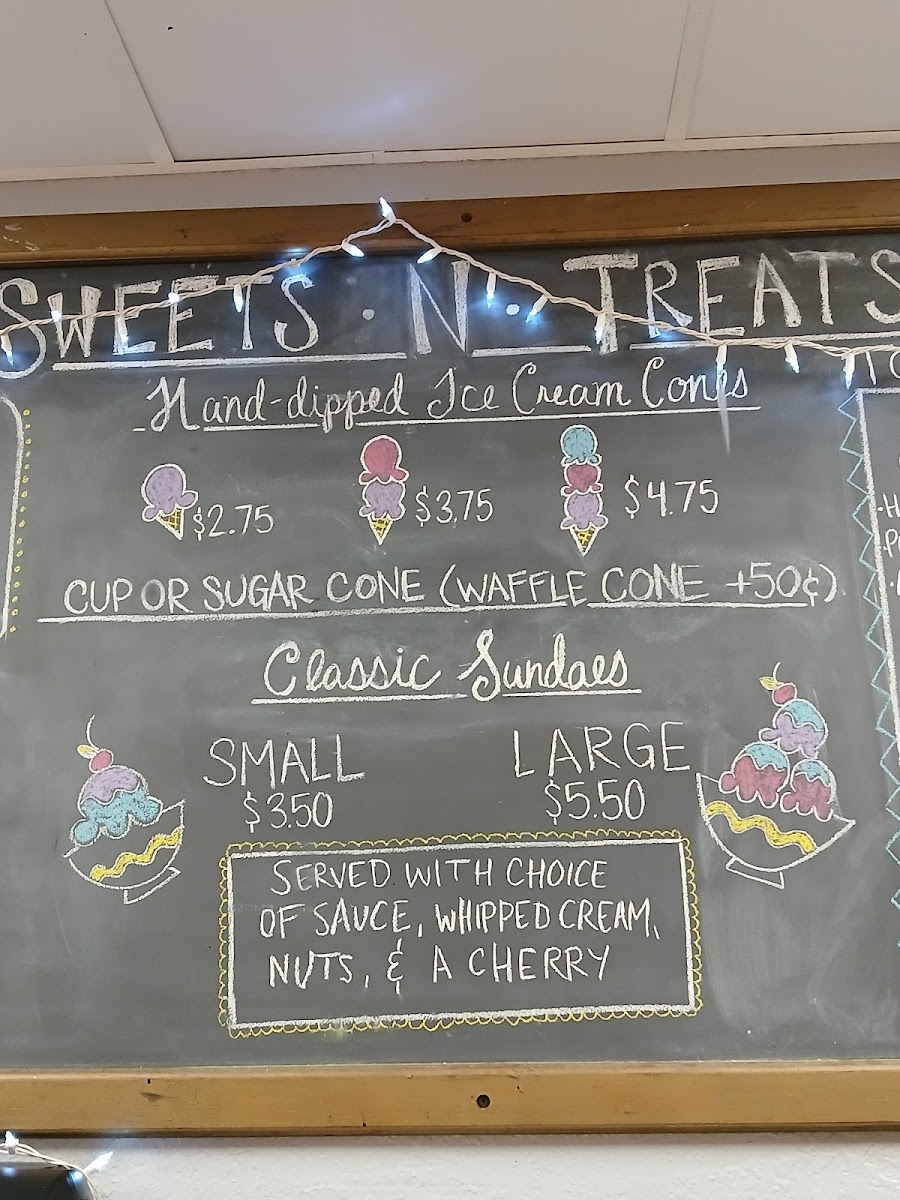 SWEETS · N · TREATS
Hand-dipped Ice Cream Cones
$2.75 $3.75 $4.75
CUP OR SUGAR CONE (WAFFLE CONE +50¢)
Classic Sundaes
SMALL LARGE
$3.50 $5.50
SERVED WITH CHOICE
OF SAUCE, WHIPPED CREAM,
NUTS, & A CHERRY